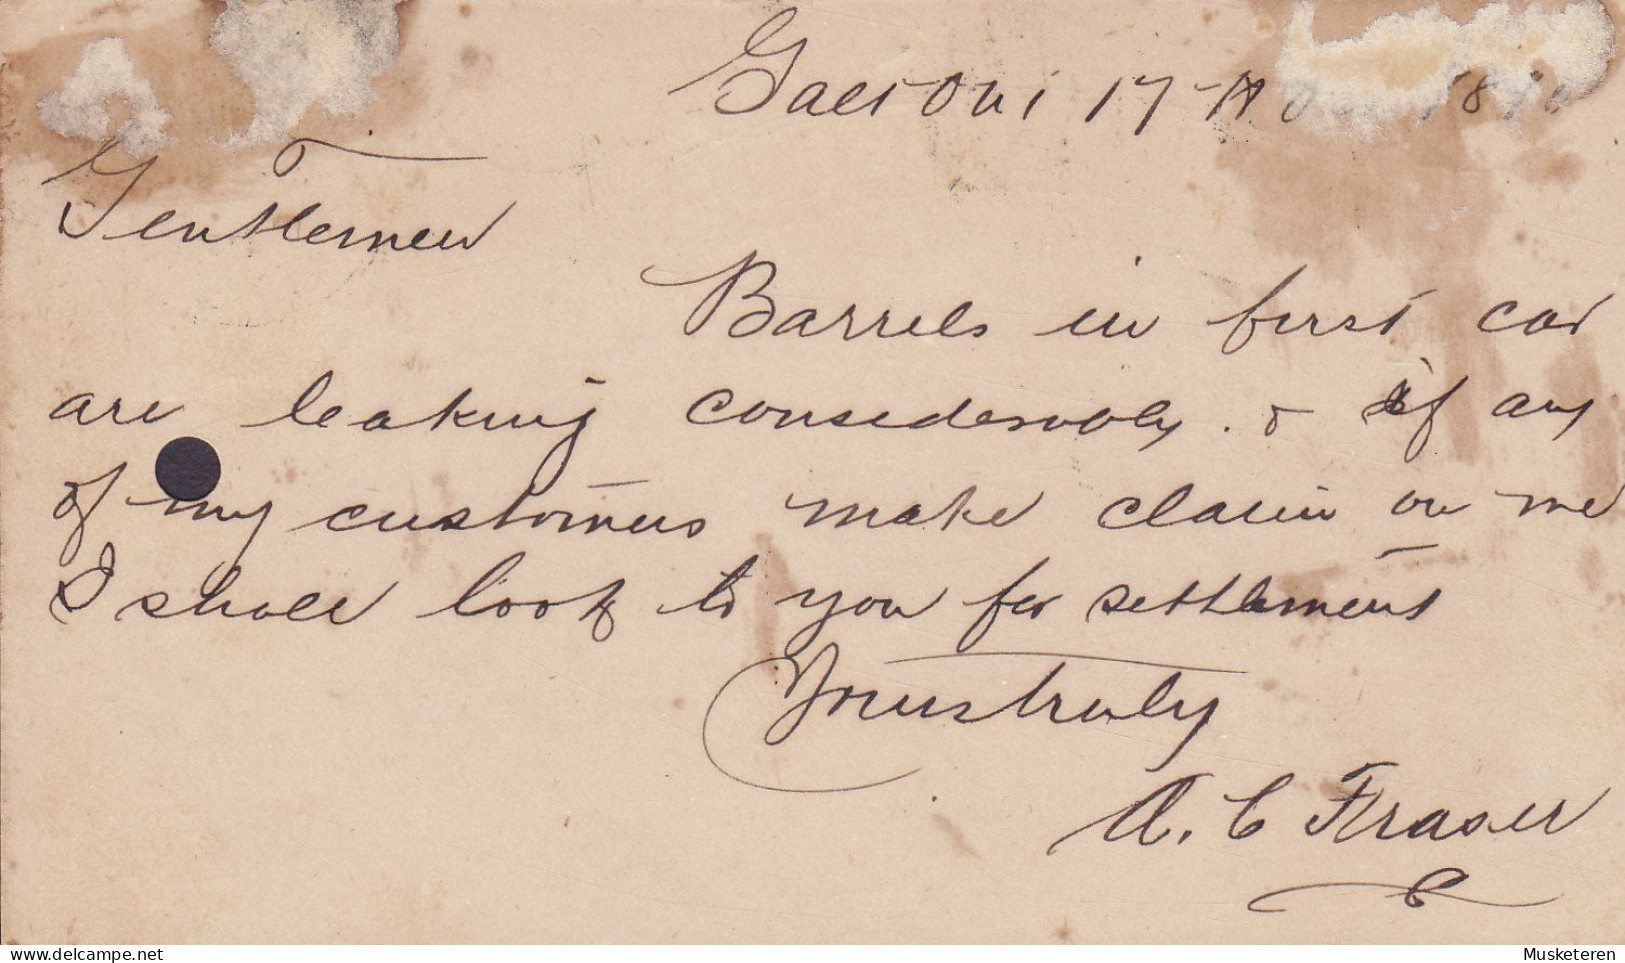 Galt Ont 17
Gentlemen
Barrels in first car
are leaking considerably. & if any
of my customers make claim on me
I shall look to you for settlement
Yours truly
A. C Fraser
www.delcampe.net
Musketeren